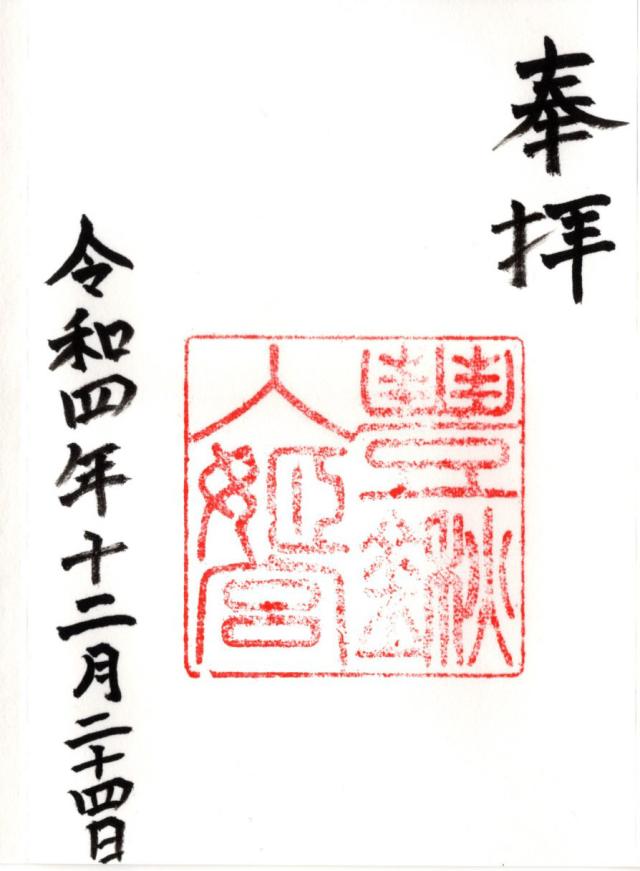 奉拝
豐鍬
入姫宮
令和四年十二月二十四日